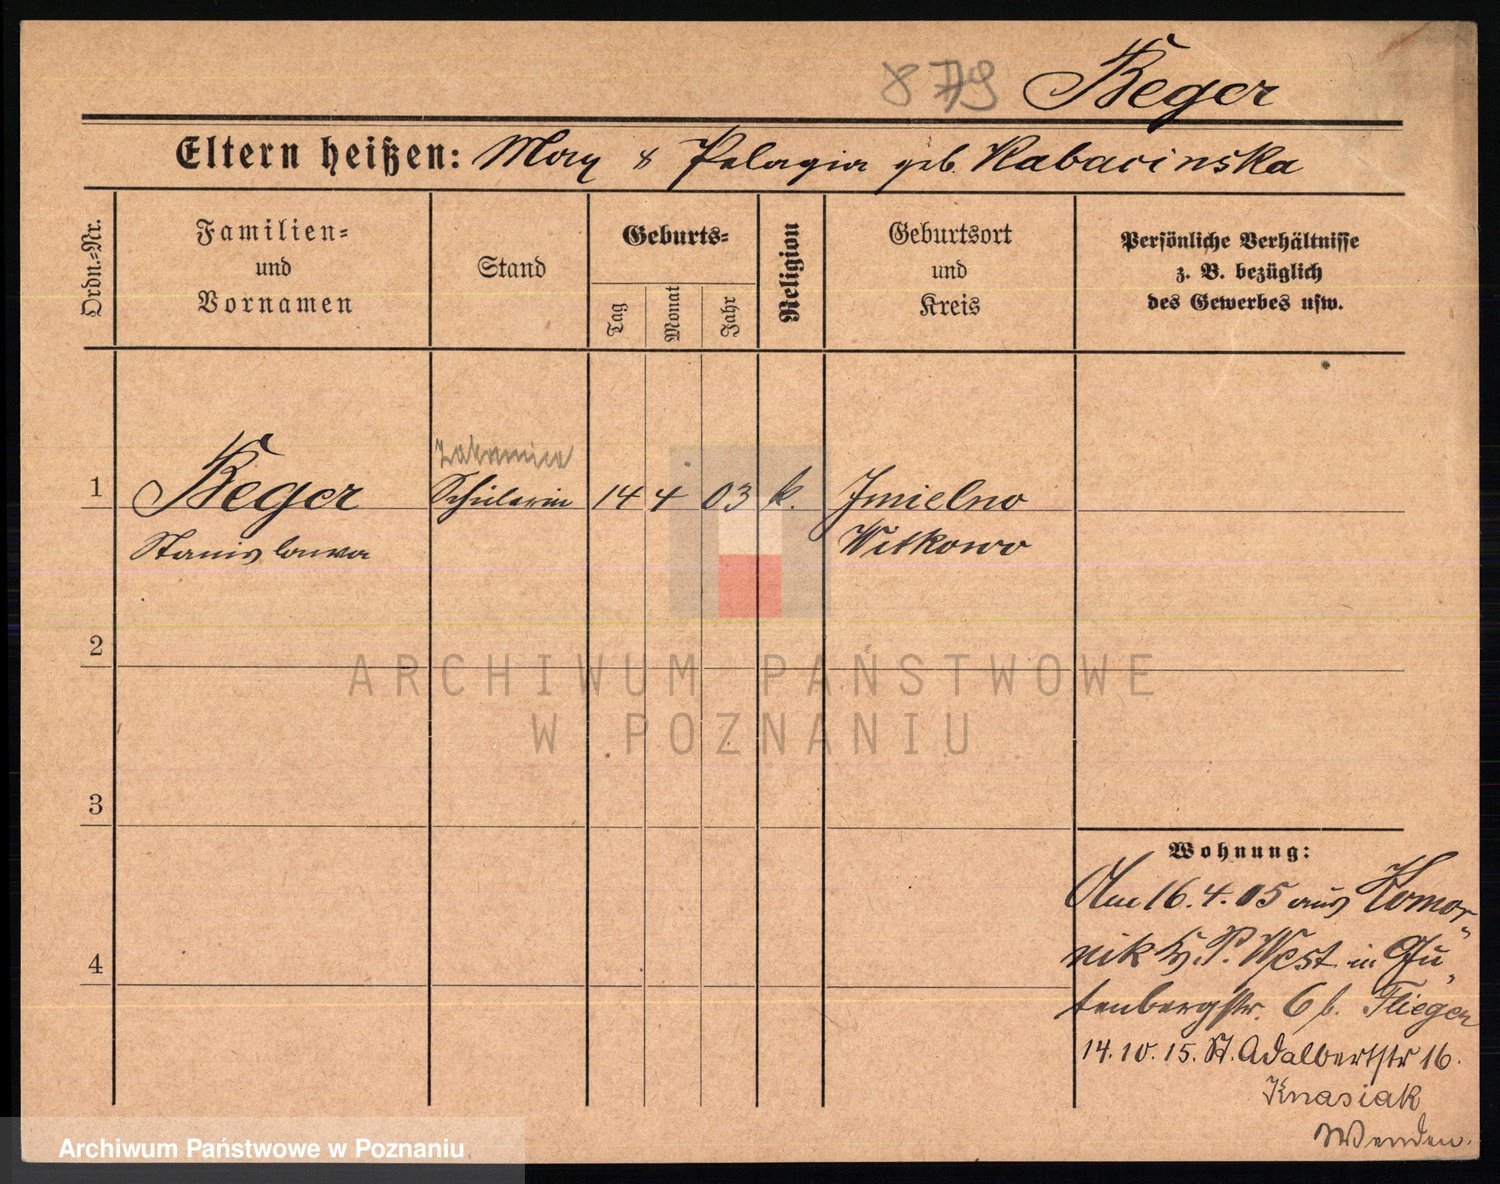 879 Beger
Eltern heißen: Max & Pelagia geb. Kabacinska
Ordn.-Nr.
Familien-
und
Vornamen
Stand
Geburts-
Tag
Monat
Jahr
Religion
Geburtsort
und
Kreis
Persönliche Verhältnisse
z. B. bezüglich
des Gewerbes usw.
1 Beger Schülerin 14 4 03 k. Imielno
Stanislawa Witkowo
2
3
4
ARCHIWUM PAŃSTWOWE
W POZNANIU
Wohnung:
Am 16.4.05 aus Komor-
nik Kr. P. West in Gu-
tenbergstr. 6 b. Flieger
14.10.15. St. Adalbertstr 16.
Knasiak
Wenden.
Archiwum Państwowe w Poznaniu